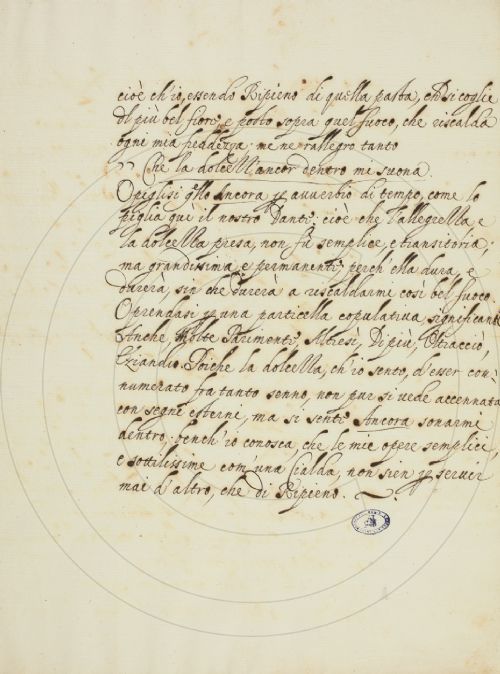 cioè ch'io, essendo Ripieno di quella pasta, che si coglie
dl più bel fiore, e posto sopra quel fuoco, che riscalda
ogni mia freddezza me ne rallegro tanto
Che la dolcell'ancor dentro mi suona.
O piglisi qllo Ancora p avverbio di tempo, come lo
piglia qui il nostro Dante; cioè che l'allegrella, e
la dolcella presa, non fù semplice, e transitoria;
ma grandissima, e permanente; perch'ella dura, e
durerà, sin che durerà a riscaldarmi così bel fuoco.
O prendasi p una particella copulativa significante
Anche, Molte Parimenti, Altresì, Di più, Oltracciò,
Eziandio. Poiche la dolcella, ch'io sento, d'esser con=
numerato fra tanto senno, non pur si vede accennata
con segni esterne, ma si sente Ancora sonarmi
dentro; bench'io conosca, che le mie opere semplici,
e sottilissime com'una cialda, non sien p servir
mai d'altro, che di Ripieno.